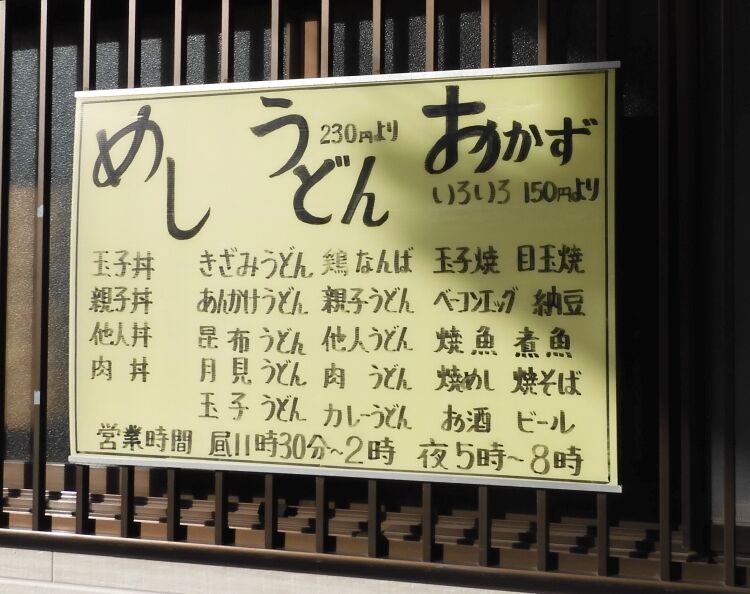 めし
うどん 230円より
おかず
いろいろ 150円より
玉子丼
親子丼
他人丼
肉丼
きざみうどん
あんかけうどん
昆布うどん
月見うどん
玉子うどん
鶏なんば
親子うどん
他人うどん
肉うどん
カレーうどん
玉子焼 目玉焼
ベーコンエッグ 納豆
焼魚 煮魚
焼めし 焼そば
お酒 ビール
営業時間 昼11時30分〜2時 夜5時〜8時